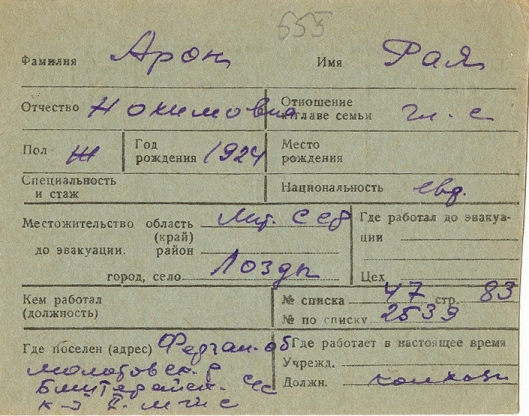 555
Фамилия Арон Имя Рая
Отчество Нохимовна Отношение к главе семьи гл. с
Пол Ж Год рождения 1924 Место рождения
Специальность и стаж Национальность евр.
Местожительство область (край) Лит. ССР Где работал до эвакуации
до эвакуации. район
город, село Лозды Цех
Кем работал (должность) № списка 47 стр. 83
№ по списку 2539
Где поселен (адрес) Ферган. об Где работает в настоящее время
Молотовск. р Учрежд.
с/с Должн. колхозн
к-з